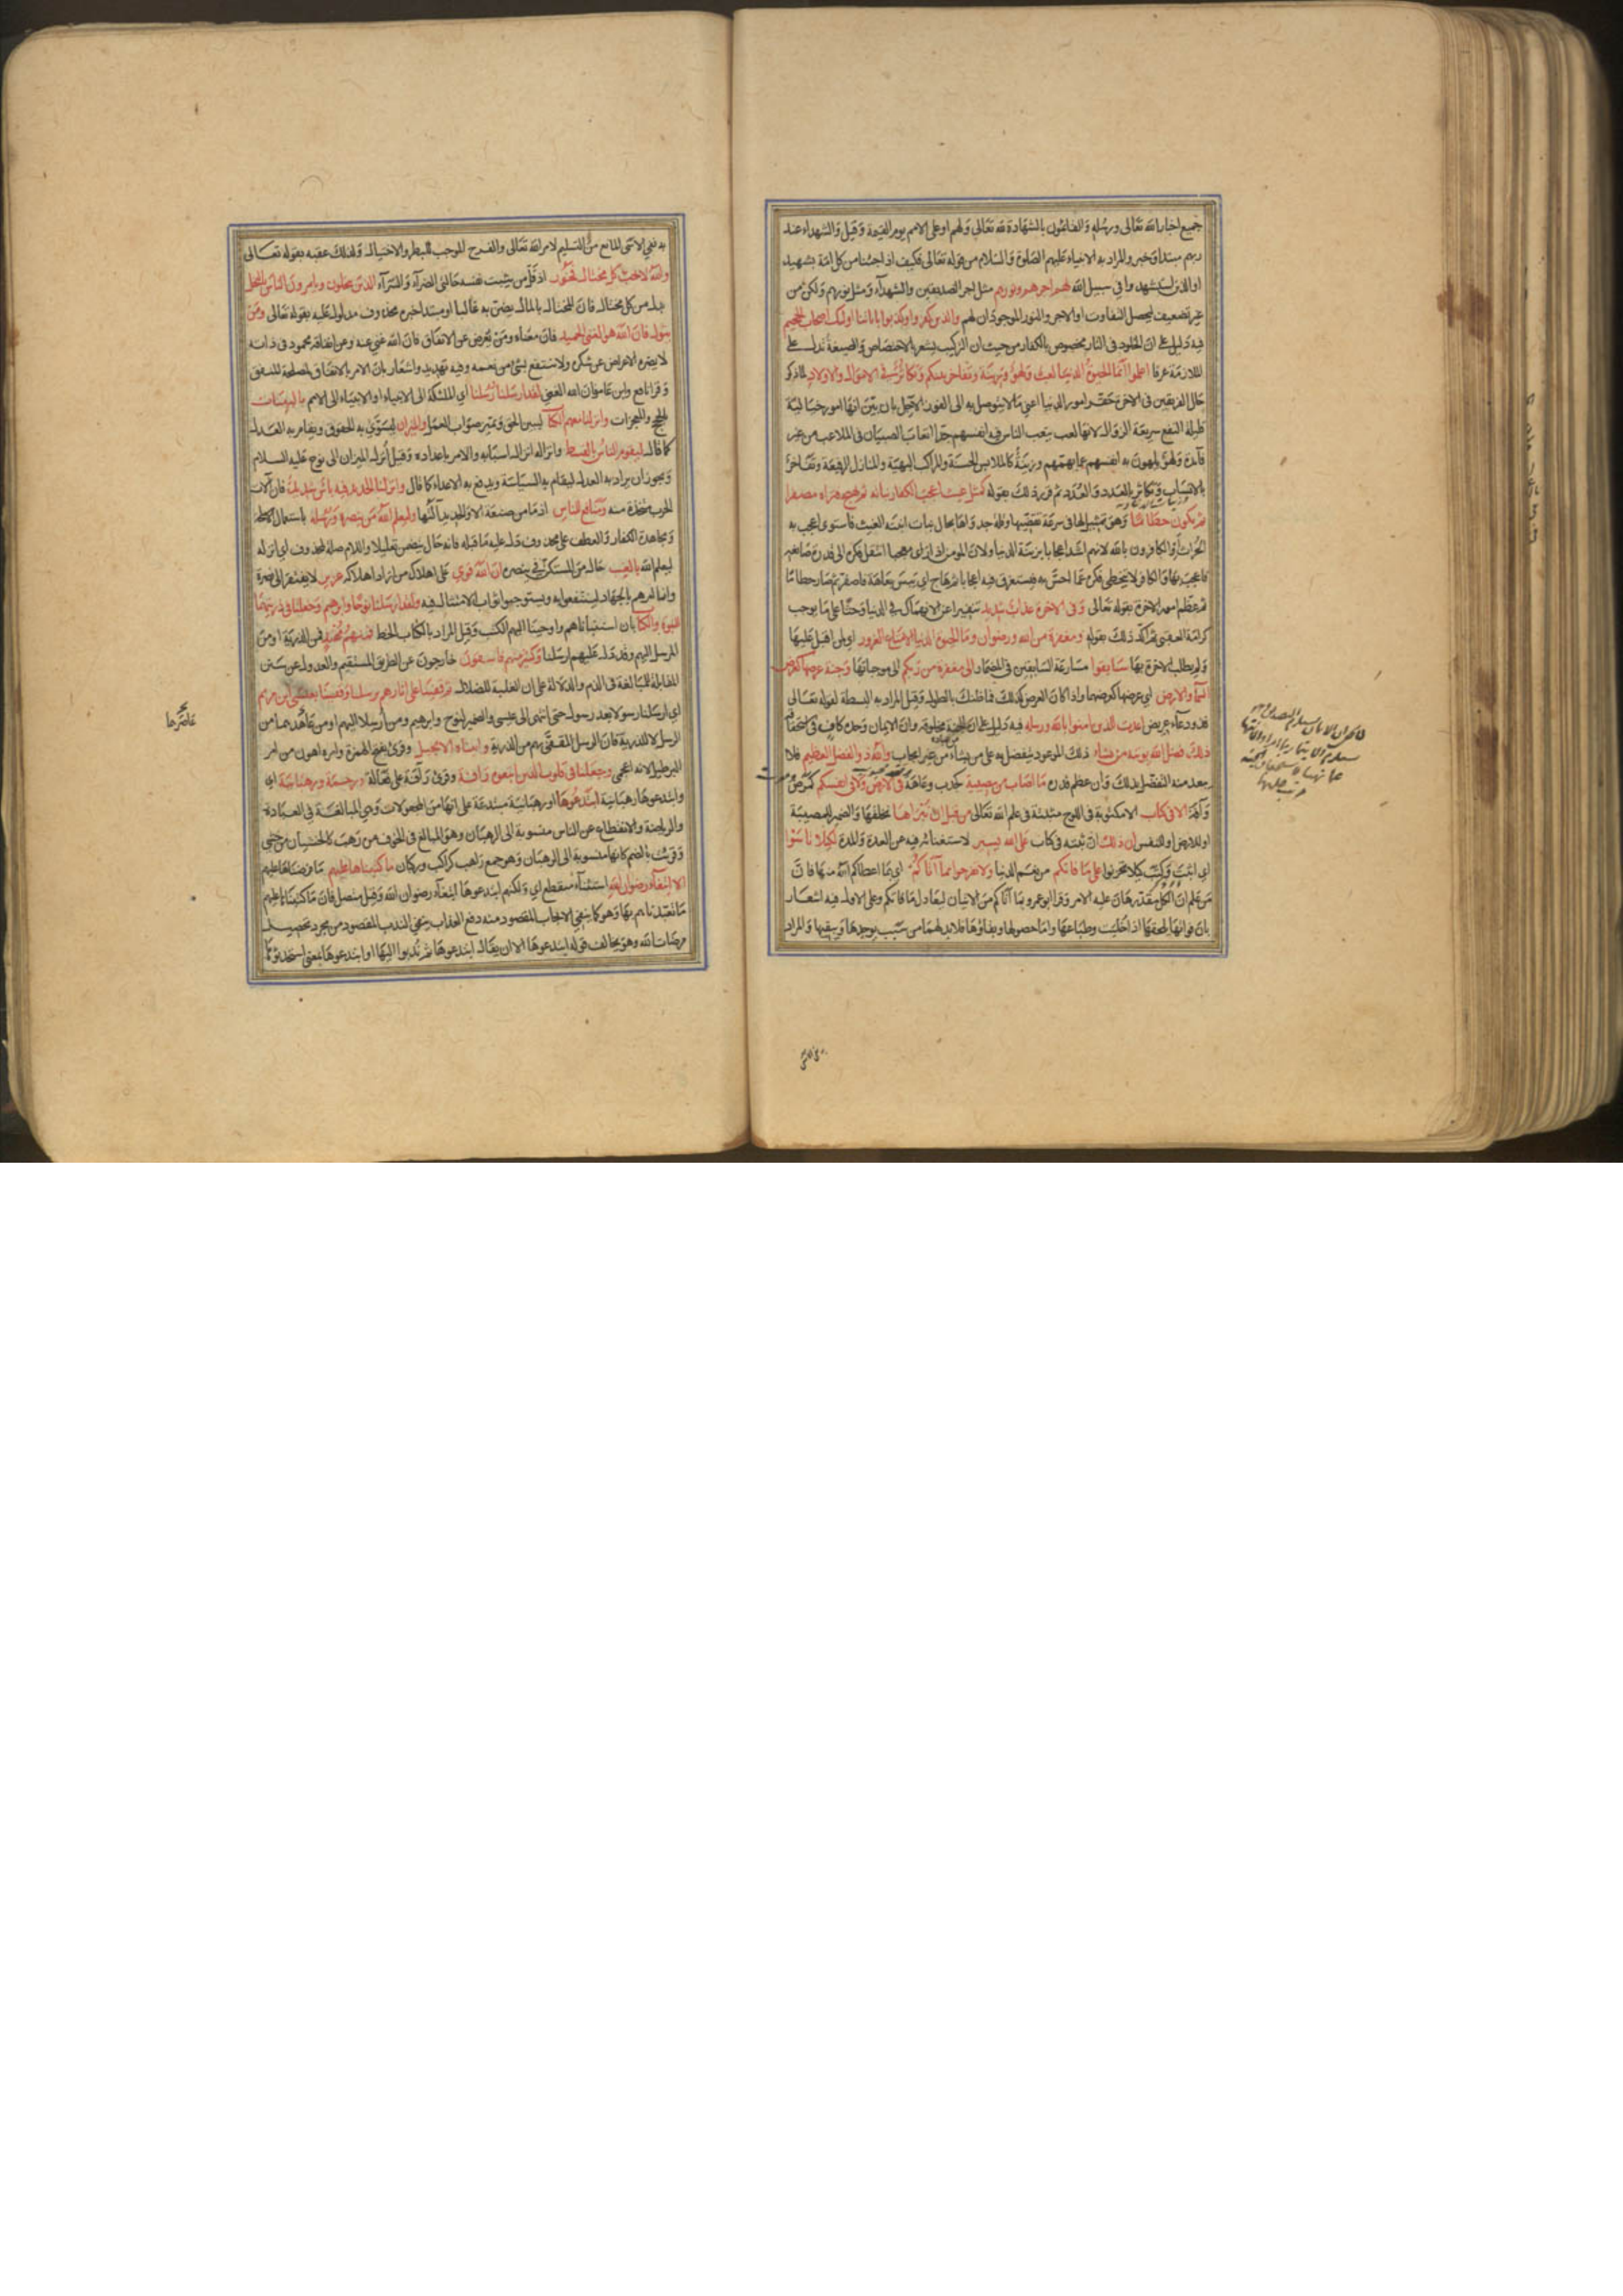 جميع اخبار الله تعالى ورسله والقائمون بالشهادة لله تعالى ولهم او على الامم يوم القيمة وقيل والشهداء عند
ربهم مبتدأ وخبر والمراد به الانبياء عليهم الصلوة والسلام من قوله تعالى فكيف اذا جئنا من كل امة بشهيد
او الذين استشهدوا في سبيل الله لهم اجرهم ونورهم مثل اجر الصديقين والشهداء ومثل نورهم ولكن من
غير تضعيف ليحصل التفاوت او الاجر والنور الموجودان لهم والذين كفروا وكذبوا باياتنا اولئك اصحاب الجحيم
فيه دليل على ان الخلود في النار مخصوص بالكفار من حيث ان التركيب يشعر بالاختصاص والصيغة تدل على
الملازمة عرفا اعلموا انما الحيوة الدنيا لعب ولهو وزينة وتفاخر بينكم وتكاثر في الاموال والاولاد لما ذكر
حال الفريقين في الاخرة حقر امور الدنيا اعني ما لا يتوصل به الى الفوز الآجل بان بين انها امور خيالية
قليلة النفع سريعة الزوال لانها لعب يتعب الناس فيه انفسهم جدا اتعاب الصبيان في الملاعب من غير
فائدة ولهو يلهون به انفسهم عما يهمهم وزينة كالملابس الحسنة والمراكب البهية والمنازل الرفيعة وتفاخر
بالانساب وتكاثر بالعدد والعدد ثم قرر ذلك بقوله كمثل غيث اعجب الكفار نباته ثم يهيج فتراه مصفرا
ثم يكون حطاما وهو تمثيل لها في سرعة تقضيها وقلة جدواها بحال نبات انبته الغيث فاستوى اعجب به
الحراث او الكافرون بالله لانهم اشد اعجابا بزينة الدنيا ولان المومن اذا راى معجبا انتقل فكره الى قدرة صانعه
فاعجب بها والكافر لا يتخطى فكره عما احس به فيستغرق فيه اعجابا ثم هاج اي يبس بعاهة فاصفر ثم صار حطاما
ثم عظم امور الاخرة بقوله تعالى وفي الاخرة عذاب شديد تنفيرا عن الانهماك في الدنيا وحثا على ما يوجب
كرامة العقبى ثم اكد ذلك بقوله ومغفرة من الله ورضوان وما الحيوة الدنيا الا متاع الغرور اي لمن اقبل عليها
ولم يطلب الاخرة بها سابقوا مسارعة السابقين في المضمار الى مغفرة من ربكم الى موجباتها وجنة عرضها كعرض
السماء والارض اي عرضها كعرضهما واذا كان العرض كذلك فما ظنك بالطول وقيل المراد به البسطة لقوله تعالى
فذو دعاء عريض اعدت للذين امنوا بالله ورسله فيه دليل على ان الجنة مخلوقة وان الايمان وحده كاف في استحقاقها
ذلك فضل الله يوتيه من يشاء ذلك الموعود يتفضل به على من يشاء من غير ايجاب والله ذو الفضل العظيم فلا
يبعد منه التفضل بذلك وان عظم قدره ما اصاب من مصيبة كجدب وعاهة في الارض ولا في انفسكم كمرض
وآفة الا في كتاب الا مكتوبة في اللوح مثبتة في علم الله تعالى من قبل ان نبراها نخلقها والضمير للمصيبة
او للارض او للنفس ان ذلك ان ثبته في كتاب على الله يسير لاستغنائه فيه عن العدة والمدة لكيلا تاسوا
اي اثبت وكتب كيلا تحزنوا على ما فاتكم من نعم الدنيا ولا تفرحوا بما آتاكم اي بما اعطاكم الله منها فان
من علم ان الكل مقدر هان عليه الامر وقرا ابو عمرو بما اتاكم من الاتيان ليعادل ما فاتكم وعلى الاول فيه اشعار
بان فواتها يلحقها اذا خليت وطباعها واما حصولها وبقاؤها فلا بد لهما من سبب يوجدها ويبقيها والمراد
به نفي الاسى المانع من التسليم لامر الله تعالى والفرح الموجب للبطر والاختيال ولذلك عقبه بقوله تعالى
والله لا يحب كل مختال فخور اذ قل من يثبت نفسه حالتي الضراء والسراء الذين يبخلون ويامرون الناس بالبخل
بدل من كل مختال فان المختال بالمال يضن به غالبا او مبتدا خبره محذوف مدلول عليه بقوله تعالى ومن
يتول فان الله هو الغني الحميد فان معناه ومن يعرض عن الانفاق فان الله غني عنه وعن انفاقه محمود في ذاته
لا يضره الاعراض عن شكره ولا ينتفع بشئ من نعمه وفيه تهديد واشعار بان الامر بالانفاق لمصلحة المنفق
وقرا نافع وابن عامر فان الله الغني لقد ارسلنا رسلنا اي الملئكة الى الانبياء او الانبياء الى الامم بالبينات
بالحجج والمعجزات وانزلنا معهم الكتاب ليبين الحق وتميز صواب العمل والميزان ليسوى به الحقوق ويقام به العدل
كما قال ليقوم الناس بالقسط وانزاله انزال اسبابه والامر باعداده وقيل انزل الميزان الى نوح عليه السلام
ويجوز ان يراد به العدل ليقام به السياسة ويدفع به الاعداء كما قال وانزلنا الحديد فيه باس شديد فان آلات
الحرب متخذة منه ومنافع للناس اذ ما من صنعة الا والحديد آلتها وليعلم الله من ينصره ورسله باستعمال الاسلحة
في مجاهدة الكفار والعطف على محذوف دل عليه ما قبله فانه حال يتضمن تعليلا واللام صلة لمحذوف اي انزله
ليعلم الله بالغيب حال من المستكن في ينصره ان الله قوي على اهلاك من اراد اهلاكه عزيز لا يفتقر الى نصرة
وانما امرهم بالجهاد لينتفعوا به ويستوجبوا ثواب الامتثال فيه ولقد ارسلنا نوحا وابرهيم وجعلنا في ذريتهما
النبوة والكتاب بان استنبأناهم واوحينا اليهم الكتب وقيل المراد بالكتاب الخط فمنهم مهتد فمن الذرية او من
المرسل اليهم وقد دل عليهم ارسلنا وكثير منهم فاسقون خارجون عن الطريق المستقيم والعدول عن سنن
المقابلة للمبالغة في الذم والدلالة على ان الغلبة للضلال ثم قفينا على اثارهم برسلنا وقفينا بعيسى ابن مريم
اي ارسلنا رسولا بعد رسول حتى انتهى الى عيسى والضمير لنوح وابرهيم ومن ارسلا اليهم او من عاصرهما من
الرسل لا للذرية فان الرسل المقفى بهم من الذرية واتيناه الانجيل وقرئ بفتح الهمزة وامره اهون من امر
البرطيل لانه اعجمي وجعلنا في قلوب الذين اتبعوه رافة وقرئ رآفة على فعالة ورحمة ورهبانية اي
وابتدعوا رهبانية ابتدعوها او رهبانية مبتدعة على انها من المجعولات وهي المبالغة في العبادة
والرياضة والانقطاع عن الناس منسوبة الى الرهبان وهو المبالغ في الخوف من رهب كالخشيان من خشي
وقرئت بالضم كانها منسوبة الى الرهبان وهو جمع راهب كراكب وركبان ما كتبناها عليهم ما فرضناها عليهم
الا ابتغاء رضوان الله استثناء منقطع اي ولكنهم ابتدعوها ابتغاء رضوان الله وقيل متصل فان ما كتبناها عليهم
ما تعبدناهم بها وهو كما ينفي الايجاب المقصود منه دفع العقاب ينفي الندب المقصود من مجرد تحصيل
مرضات الله وهو يخالف قوله ابتدعوها الا ان يقال ابتدعوها ثم ندبوا اليها او ابتدعوها بمعنى استحدثوها
عاصرهما